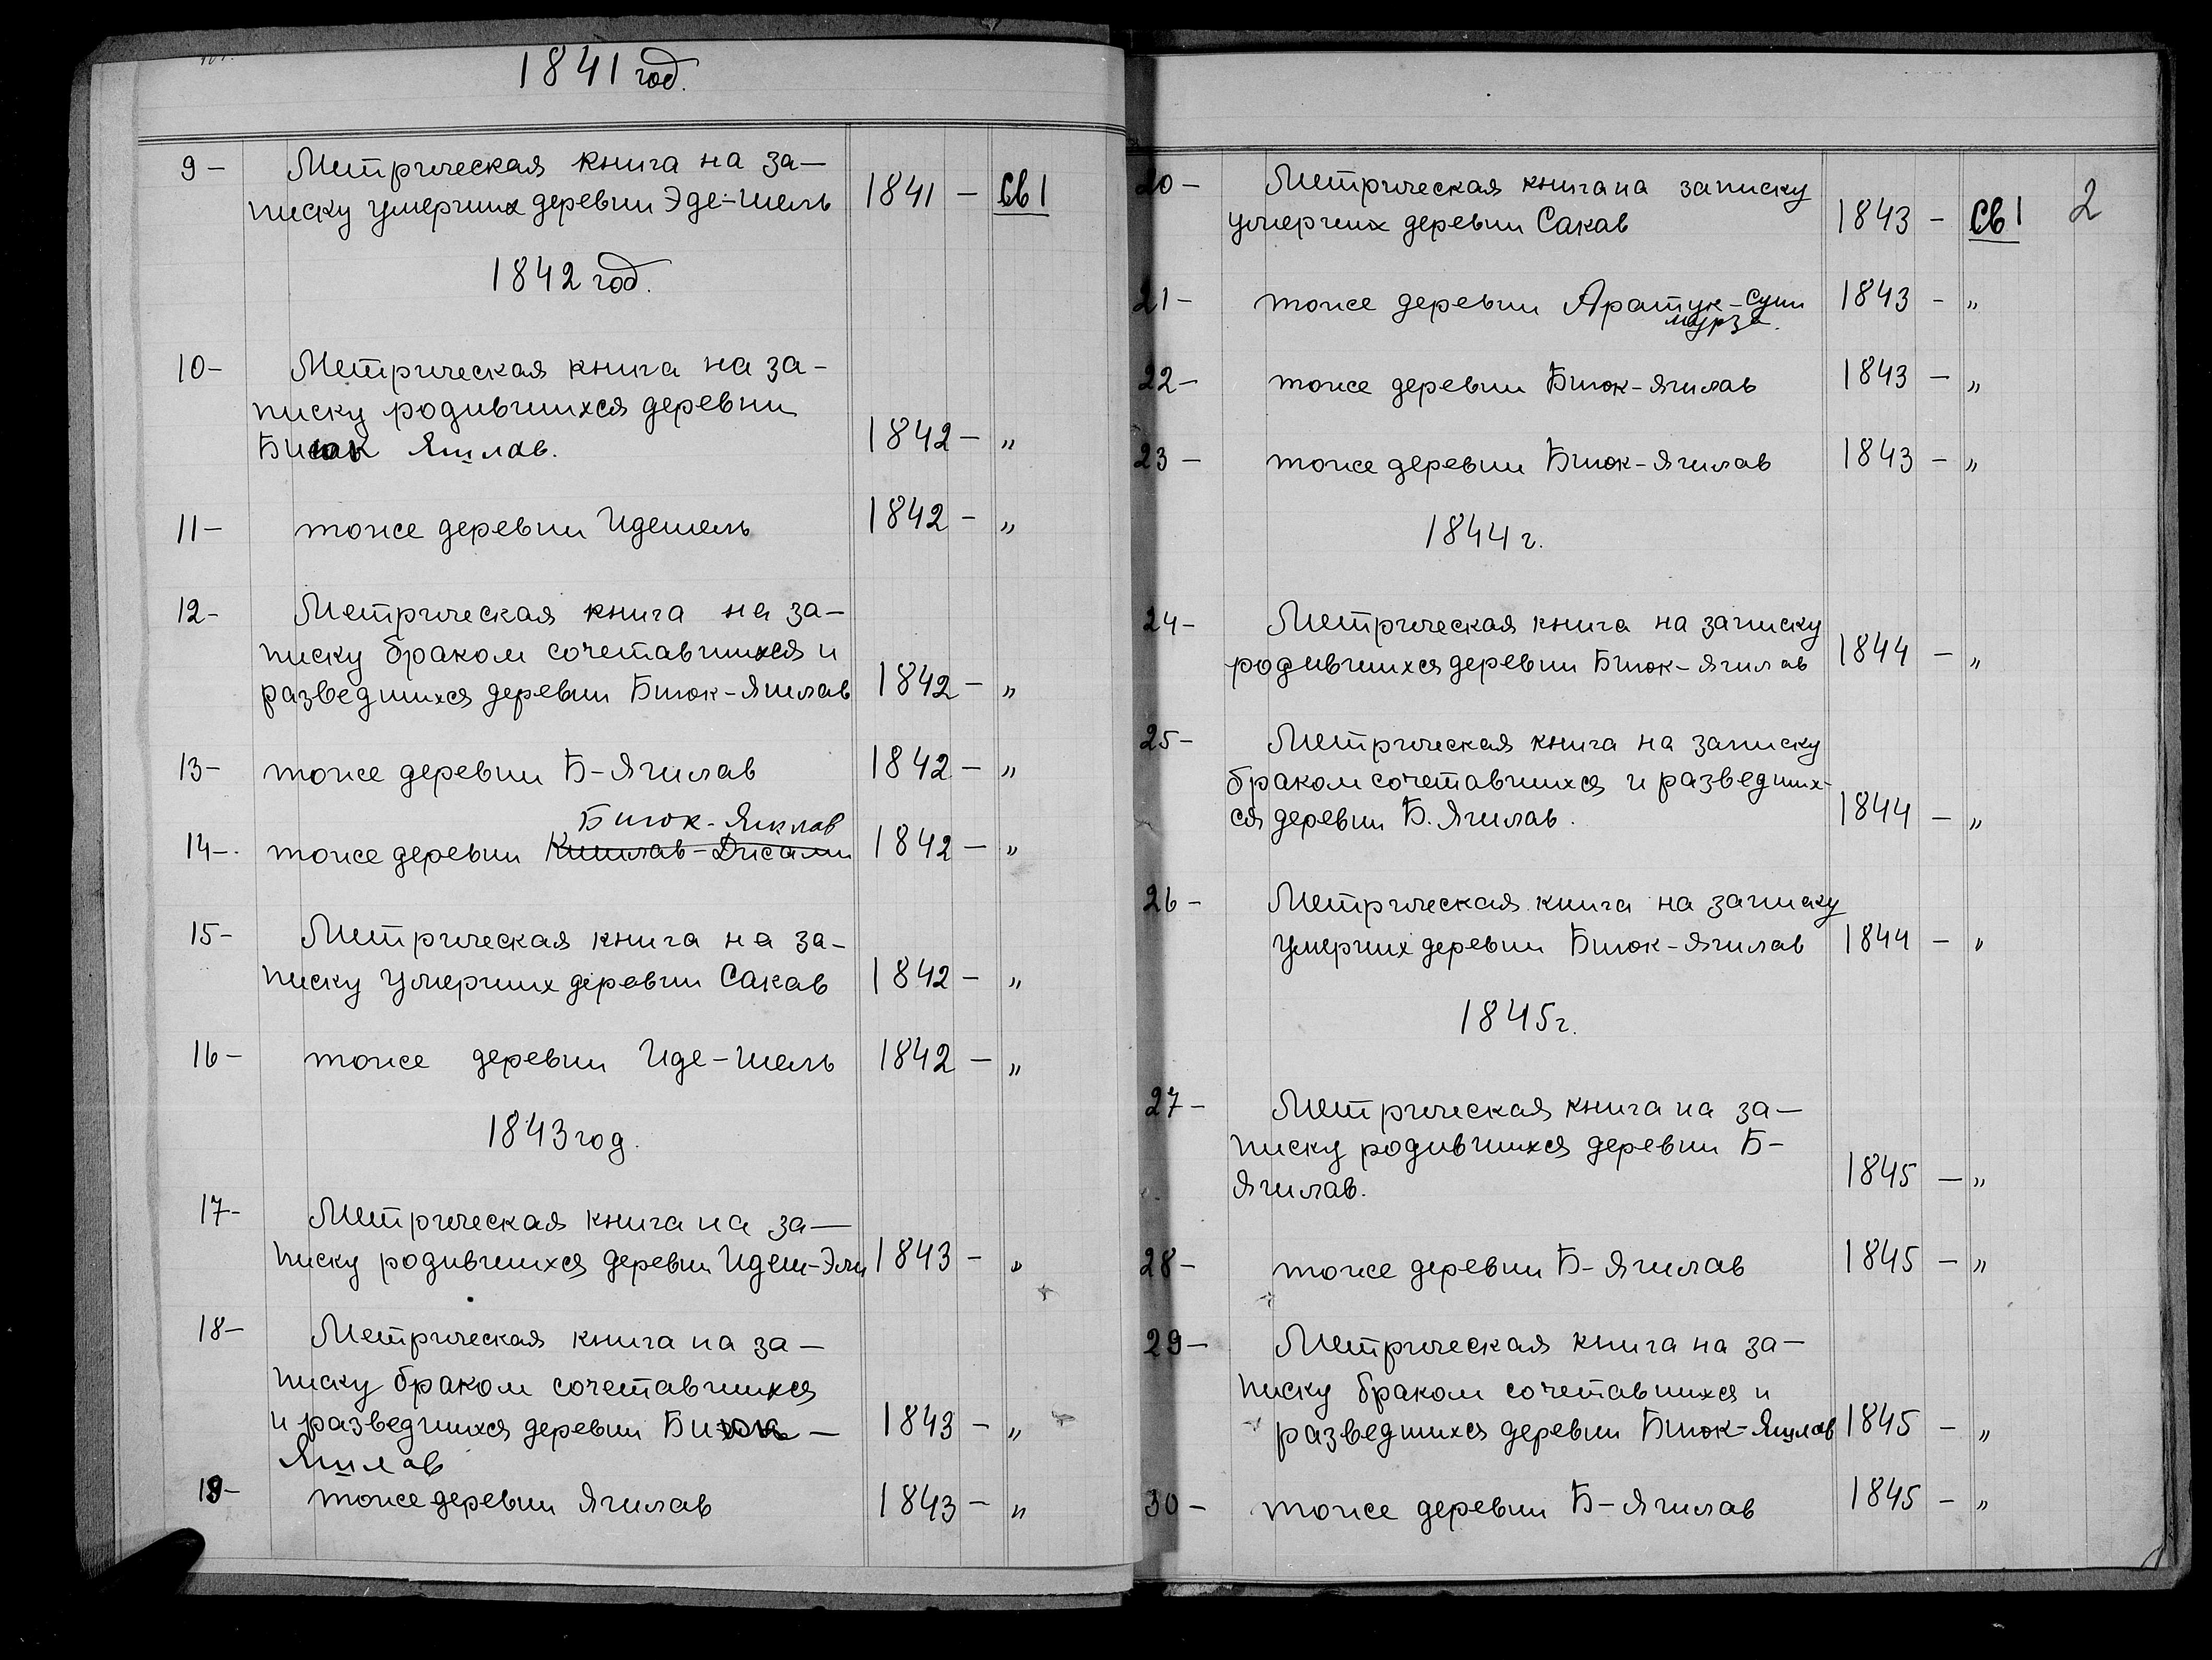 1841 год.
9 — Метрическая книга на за—
писку умерших деревни Эде-шель 1841 — Св 1
1842 год.
10 — Метрическая книга на за-
писку родившихся деревни
Биюк Яшлав. 1842 — „
11 — тоже деревни Идешель 1842 — „
12 — Метрическая книга на за—
писку браком сочетавшихся и
разведшихся деревни Биюк-Яшлав 1842 — „
13 — тоже деревни Б-Яшлав 1842 — „
Биюк-Яшлав
14 — тоже деревни 1842 — „
15 — Метрическая книга на за-
писку умерших деревни Сакав 1842 — „
16 — тоже деревни Иде-шель 1842 — „
1843 год.
17 — Метрическая книга на за—
писку родившихся деревни Идеш-Эли 1843 — „
18 — Метрическая книга на за—
писку браком сочетавшихся
и разведшихся деревни Биюк — 1843 — „
Яшлав
19 — тоже деревни Яшлав 1843 — „
2
20 — Метрическая книга на записку
умерших деревни Сакав 1843 — Св 1
21 — тоже деревни Аратук-Суин 1843 — „
мурза.
22 — тоже деревни Биюк-Яшлав 1843 — „
23 — тоже деревни Биюк-Яшлав 1843 — „
1844 г.
24 — Метрическая книга на записку
родившихся деревни Биюк-Яшлав 1844 — „
25 — Метрическая книга на записку
браком сочетавшихся и разведших-
ся деревни Б. Яшлав. 1844 — „
26 — Метрическая книга на записку
умерших деревни Биюк-Яшлав 1844 — „
1845 г.
27 — Метрическая книга на за—
писку родившихся деревни Б-
Яшлав. 1845 — „
28 — тоже деревни Б-Яшлав 1845 — „
29 — Метрическая книга на за—
писку браком сочетавшихся и
разведшихся деревни Биюк-Яшлав 1845 — „
30 — тоже деревни Б-Яшлав 1845 — „